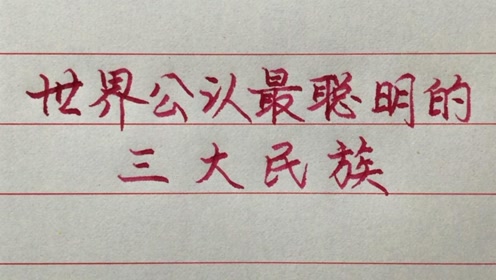 世界公认最聪明的
三大民族